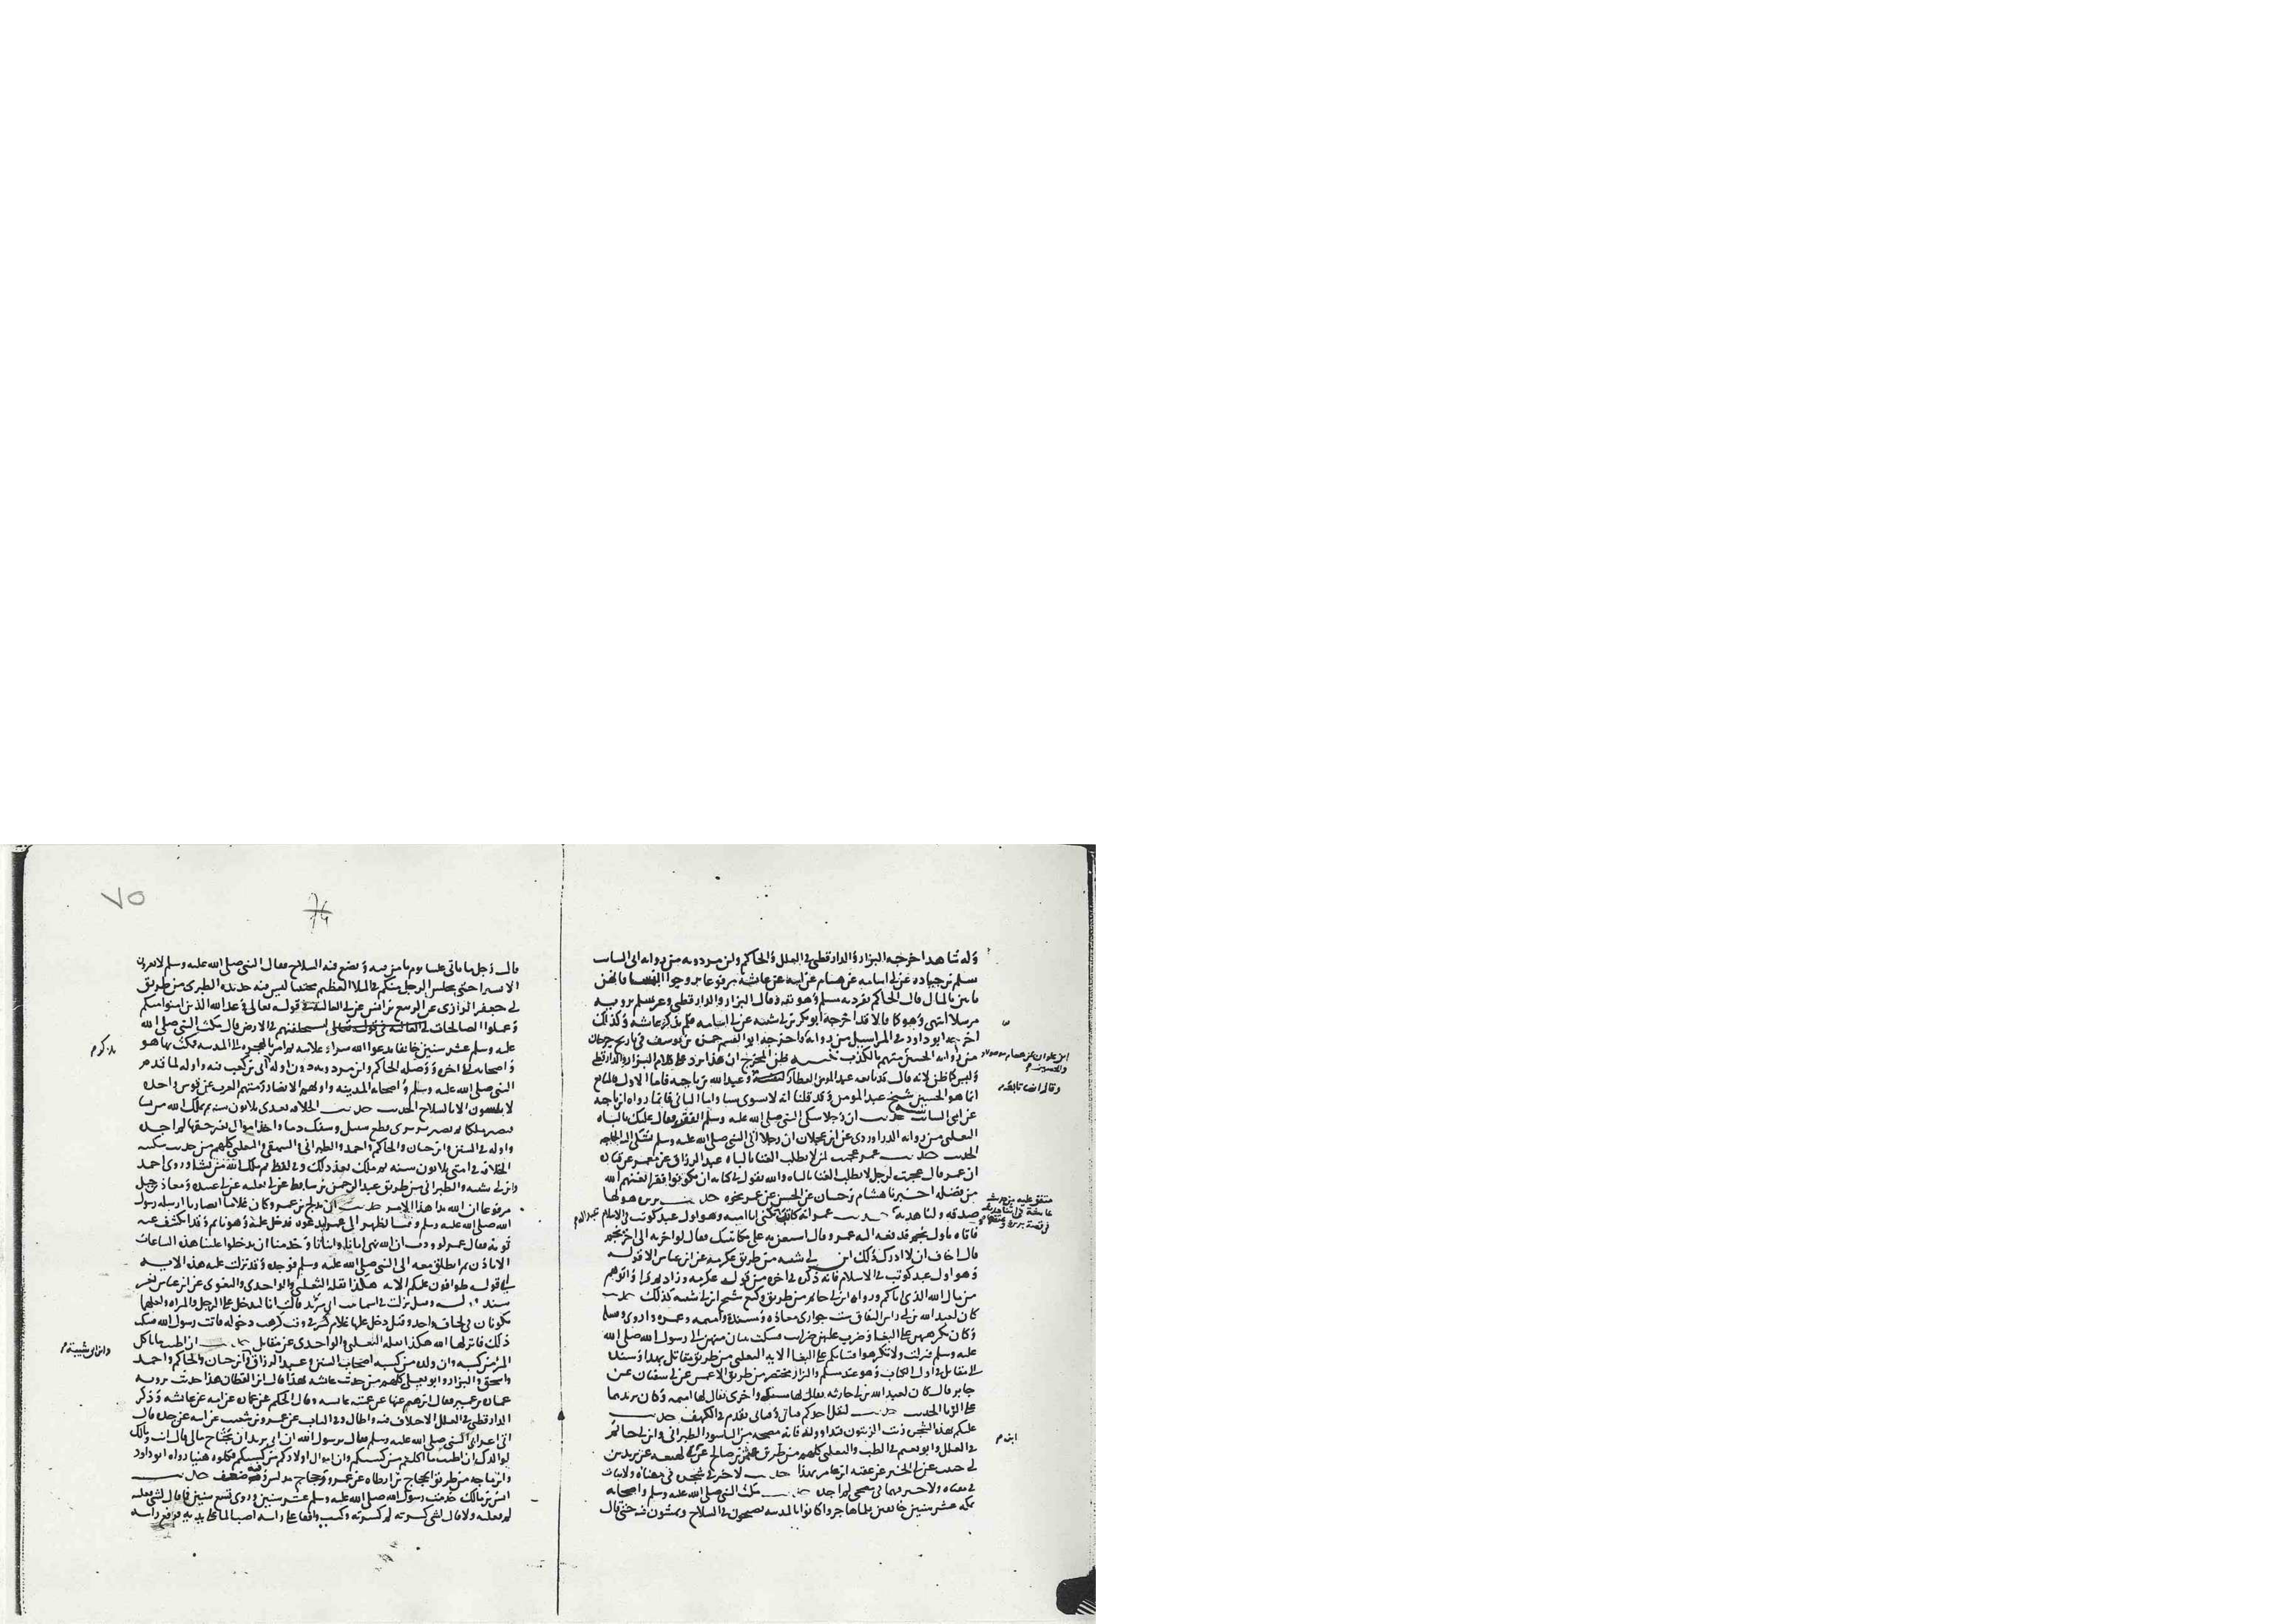 وله شاهد اخرجه البزار والدارقطني في العلل والحاكم وابن مردويه من رواية ابي السائب
سلم بن جناده عن ابي اسامه عن هشام عن ابيه عن عائشة مرفوعا تزوجوا النسا فانهن
ياتين بالمال قال الحاكم تفرد به سلم وهو ثقه وقال البزار والدارقطني وغير سلم يرويه
مرسلا انتهى وهو كما قالا قد اخرجه ابو بكر بن ابي شيبه عن ابي اسامه فلم يذكر عائشه وكذلك
اخرجه ابو داود في المراسيل من رواية واخرجه ابو القسم حمزه بن يوسف في تاريخ جرجان
من رواية الحسين متهم بالكذب ظن المخرج ان هذا يرد على كلام البزار والدارقطني
وليس كما ظن لانه قال قد تابعه عبد المومن العطار وعبد الله بن ناجيه فاما الاول فالمتابع
انما هو الحسين شيخ عبد المومن وقد قلنا انه لا يسوى شيا واما الثاني فانما رواه ابن ناجيه
عن ابي السائب حديث ان رجلا شكى الى النبي صلى الله عليه وسلم الفقر فقال عليك بالباه
الثعلبي من رواية الدراوردي عن ابن عجلان ان رجلا اتى النبي صلى الله عليه وسلم يشكى اليه الحاجه
الحديث حديث عمر عجبت لمن لا يطلب الغنا بالباه عبد الرزاق عن معمر عن قتاده
ان عمر قال عجبت لرجل لا يطلب الغنا بالباه والله يقول في كتابه ان يكونوا فقرا يغنهم الله
من فضله اخبرنا هشام بن حسان عن الحسن عن عمر نحوه حديث بريره هو لها
صدقه ولنا هديه حديث عمر انه كاتب يكنى ابا اميه وهو اول عبد كوتب في الاسلام
فاتاه باول نجم فدفعه اليه عمر وقال استعن به على مكاتبتك فقال لو اخرته الى اخر نجم
قال اخاف ان لا ادرك ذلك ابن ابي شيبه من طريق عكرمه عن ابن عباس الا قوله
وهو اول عبد كوتب في الاسلام فانه ذكره في اخره من قول عكرمه وزاد ثم قرا واتوهم
من مال الله الذي اتاكم ورواه ابن ابي حاتم من طريق وكيع شيخ ابن ابي شيبه كذلك حديث
كان لعبد الله بن ابي راس النفاق ست جواري معاذه ومسيكة واميمه وعمره واروى وقتيله
وكان يكرههن على البغا وضرب عليهن ضرايب فشكت ثنتان منهن الى رسول الله صلى الله
عليه وسلم فنزلت ولا تكرهوا فتياتكم على البغا الايه الثعلبي من طريق مقاتل بهذا وسنده
الى مقاتل في اول الكتاب وهو عند مسلم والبزار مختصر من طريق الاعمش عن ابي سفيان عن
جابر قال كان لعبد الله بن ابي جاريه يقال لها مسيكه واخرى يقال لها اميمه وكان يريدهما
على الزنا الحديث حديث لا يقل احدكم فتاي وفتاتي تقدم في الكهف حديث
عليكم بهذه الشجره زيت الزيتون فتداووا به فانه مصحه من الباسور الطبراني وابن ابي حاتم
في العلل وابو نعيم في الطب والثعلبي كلهم من طريق عثمان بن صالح عن ابن لهيعه عن يزيد بن
ابي حبيب عن ابي الخير عن عقبه ابن عامر بهذا حديث لا خير في شجره في مقناه ولا نبات
في مقناه ولا خير فيهما في مضحى لم اجده حديث مكث النبي صلى الله عليه وسلم واصحابه
بمكه عشر سنين خائفين فلما هاجروا كانوا بالمدينه يصبحون في السلاح ويمسون فيه حتى قال
وقال ايضا تابعه م
متفق عليه من حديث
عائشة في اثناء حديث
في قصة بريرة وعتقها م
ابن م
٧٥
74
قال رجل ما ياتي علينا يوم نامن فيه ونضع فيه السلاح فقال النبي صلى الله عليه وسلم لا تغبرون
الا يسيرا حتى يجلس الرجل منكم في الملا العظيم محتبيا ليس فيه حديده الطبري من طريق
ابي جعفر الرازي عن الربيع بن انس عن ابي العاليه في قوله تعالى وعد الله الذين امنوا منكم
وعملوا الصالحات ليستخلفنهم في الارض قال مكث النبي صلى الله
عليه وسلم عشر سنين خايفا يدعوا الله سرا وعلانيه ثم امر بالهجره الى المدينه فمكث بها هو
واصحابه في اخره ووصله الحاكم وابن مردويه دون اوله الى بن كعب فيه واوله لما قدم
النبي صلى الله عليه وسلم واصحابه المدينه واواهم الانصار رمتهم العرب عن قوس واحده
لا يلبسون الا بالسلاح الحديث حديث الخلافه بعدي ثلاثون سنه ثم يملك الله من يشا
فتصير ملكا ثم تصير بزيزى قطع سبيل وسفك دما واخذ اموال بغير حقها لم اجده
واوله في السنن وابن حبان والحاكم واحمد والطبراني والبيهقي والثعلبي كلهم من حديث سفينه
الخلافه في امتي ثلاثون سنه ثم ملك بعد ذلك وفي لفظ ثم ملك الله من يشا وروى احمد
وابن ابي شيبه والطبراني من طريق عبد الرحمن بن سابط عن ابي ثعلبه عن ابي عبيده ومعاذ بن جبل
مرفوعا ان الله بدا هذا الامر حديث ان مدلج بن عمرو وكان غلاما انصاريا ارسله رسول
الله صلى الله عليه وسلم وقت الظهر الى عمر ليدعوه فدخل عليه وهو نايم وقد انكشف عنه
ثوبه فقال عمر لوددت ان الله نهى اباءنا وابناءنا وخدمنا ان يدخلوا علينا هذه الساعات
الا باذن ثم انطلق معه الى النبي صلى الله عليه وسلم فوجده وقد نزلت عليه هذه الايه
الى قوله طوافون عليكم الايه هكذا نقله الثعلبي والواحدي والبغوي عن ابن عباس بغير
سند قوله وقيل نزلت في اسما بنت ابي مرثد قالت انا لندخل على الرجل والمراه ولعلهما
يكونان في لحاف واحد وقيل دخل عليها غلام كبير في وقت كرهت دخوله فاتت رسول الله فشكت
ذلك فانزلها الله هكذا نقله الثعلبي والواحدي عن مقاتل حديث ان اطيب ما ياكل
المرء من كسبه وان ولده من كسبه اصحاب السنن وعبد الرزاق وابن حبان والحاكم واحمد
واسحق والبزار وابو يعلى كلهم من حديث عائشه بهذا قال ابن القطان هذا حديث يرويه
عماره بن عمير فقال ابراهيم عنها عن عمته عن عائشه وقال الحكم عن عماره عن امه عن عائشه وذكر
الدارقطني في العلل الاختلاف فيه واطال وفي الباب عن عمرو بن شعيب عن ابيه عن جده قال
اتى اعرابي النبي صلى الله عليه وسلم فقال يرسول الله ان ابي يريد ان يجتاح مالي قال انت ومالك
لوالدك ان اطيب ما اكلتم من كسبكم وان اموال اولادكم من كسبكم فكلوه هنيا رواه ابو داود
وابن ماجه من طريق الحجاج بن ارطاه عن عمرو وحجاج مدلس وفيه ضعف حديث
انس بن مالك خدمت رسول الله صلى الله عليه وسلم عشر سنين وروي تسع سنين فما قال لشي فعلته
لم فعلته ولا قال لشي كسرته لم كسرته وكنت واقفا على راسه اصب الما على يديه فرفع راسه
وابن ابي شيبة م